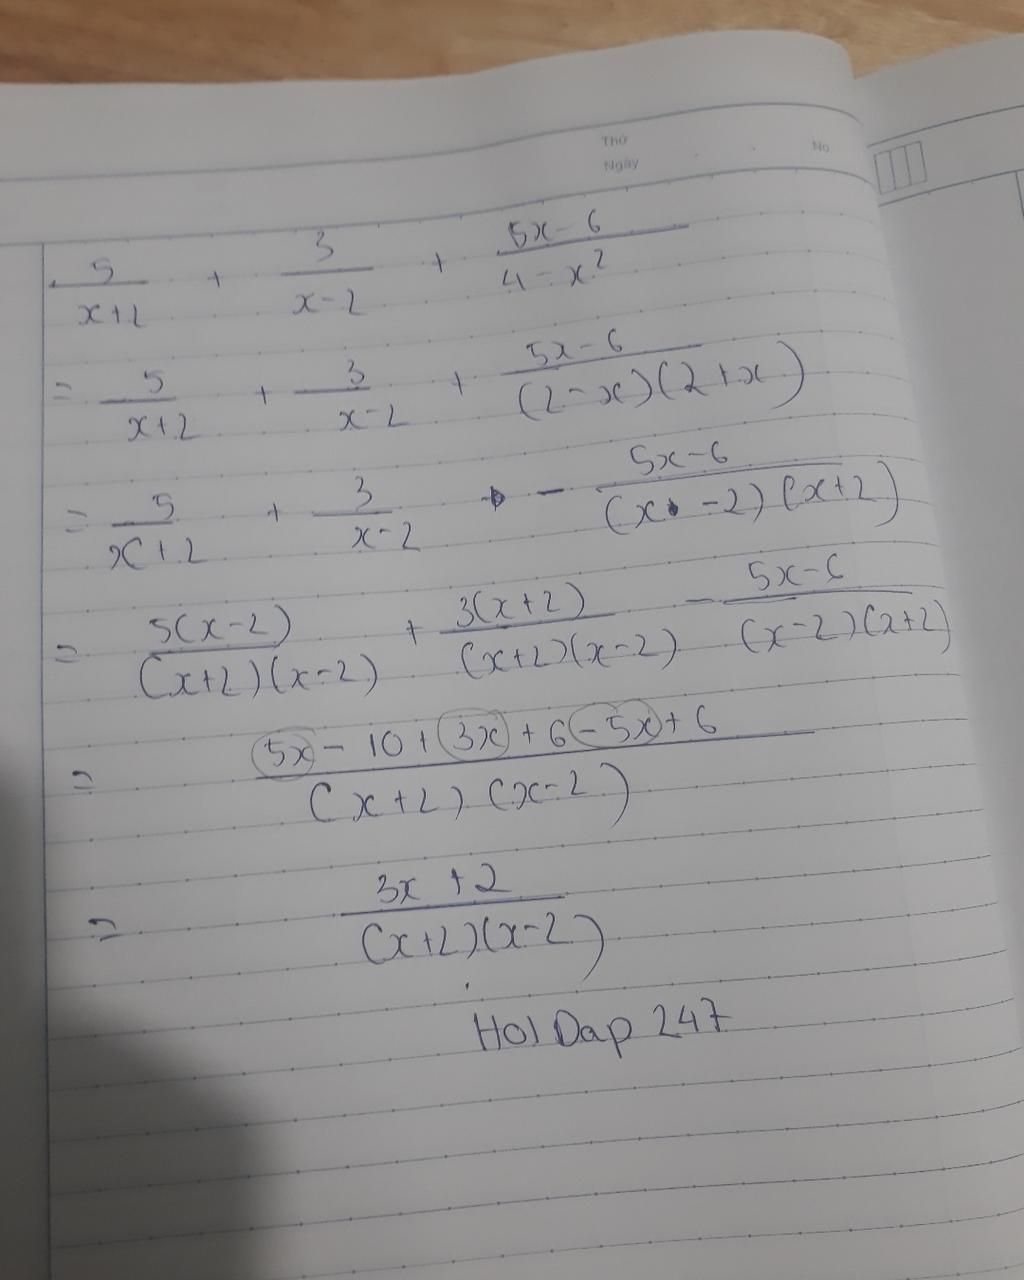 Thứ
Ngày
No
5/(x+2) + 3/(x-2) + (5x-6)/(4-x²)
= 5/(x+2) + 3/(x-2) + (5x-6)/((2-x)(2+x))
= 5/(x+2) + 3/(x-2) - (5x-6)/((x-2)(x+2))
= 5(x-2)/((x+2)(x-2)) + 3(x+2)/((x+2)(x-2)) - (5x-6)/((x-2)(x+2))
= (5x-10+3x+6-5x+6)/((x+2)(x-2))
= (3x+2)/((x+2)(x-2))
HoI Dap 247